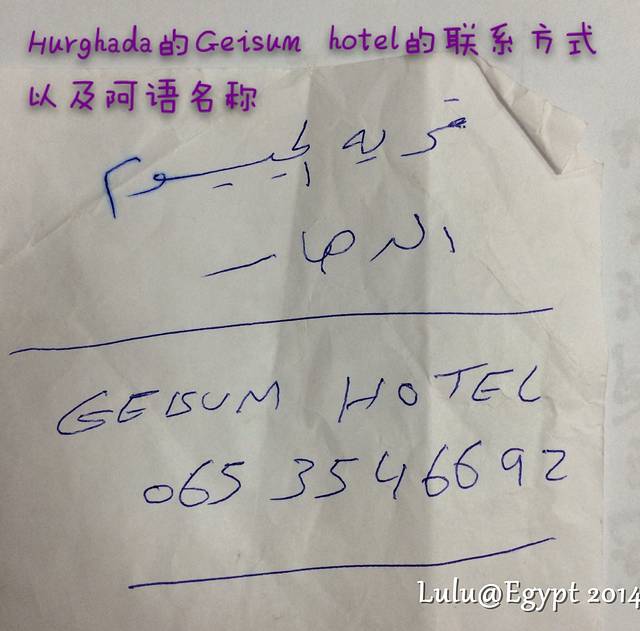 Hurghada的Geisum hotel的联系方式
以及阿语名称
قريه الجيسوم
الدهار
GEISUM HOTEL
065 3546692
Lulu@Egypt 2014